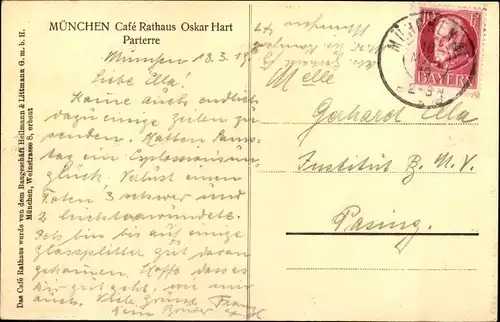 MÜNCHEN Café Rathaus Oskar Hart
Parterre
München 18.3.19
Liebe Ella!
Komme auch endlich
dazu einige Zeilen zu
senden. Hatten Sams-
tag ein Explosionsun-
glück. Verlust einen
Toten 3 schwer und
2 leichtverwundete.
Ich bin bis auf einige
Glassplitter gut davon
gekommen. Hoffe dass es
Dir gut geht, wie mir
auch. Viele Grüsse
Dein Bruder
Das Café Rathaus wurde von dem Baugeschäft Heilmann & Littmann G. m. b. H.
München, Weinstrasse 8, erbaut
München
BAYERN
Melle
Gerhard Ella
Institut B. M. V.
Pasing.